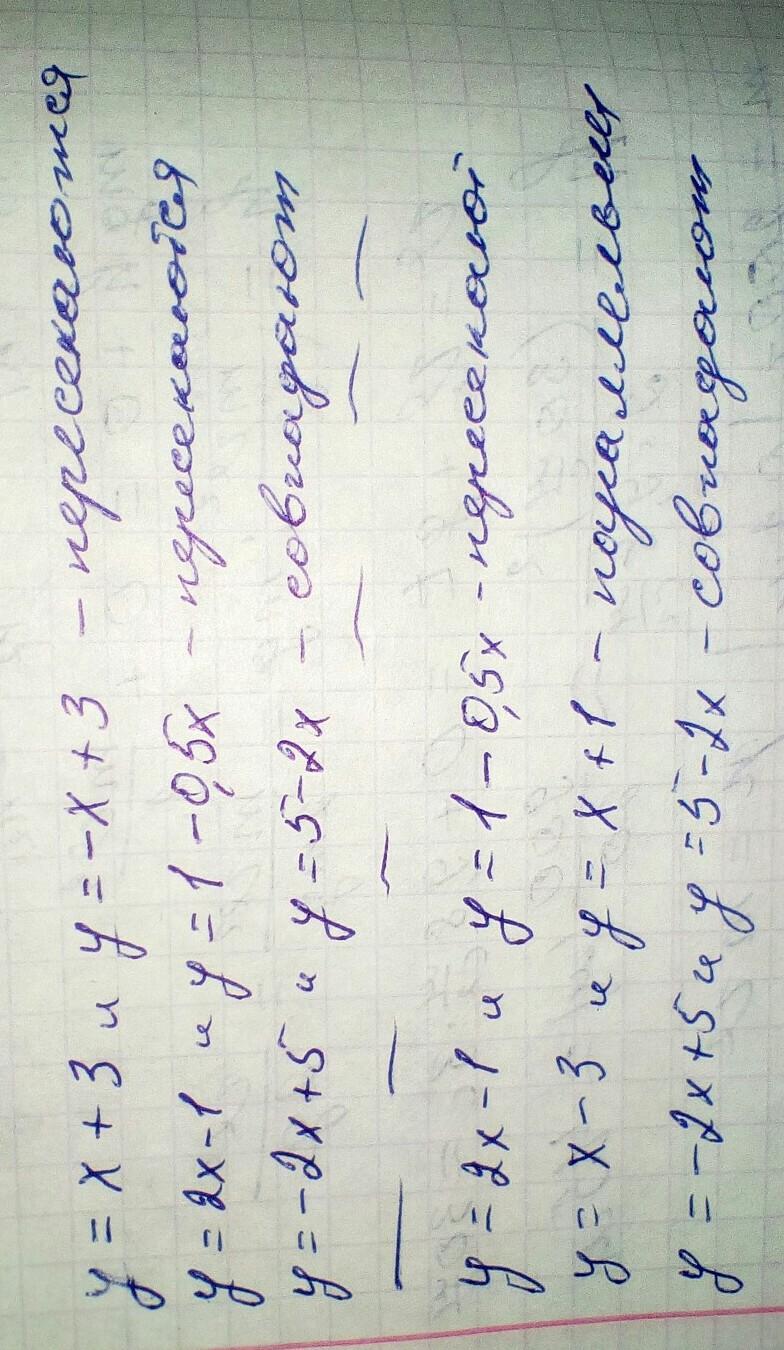 y = x + 3 и y = -x + 3 - пересекаются
y = 2x - 1 и y = 1 - 0,5x - пересекаются
y = -2x + 5 и y = 5 - 2x - совпадают
y = 2x - 1 и y = 1 - 0,5x - пересекают
y = x - 3 и y = x + 1 - параллельны
y = -2x + 5 и y = 5 - 2x - совпадают